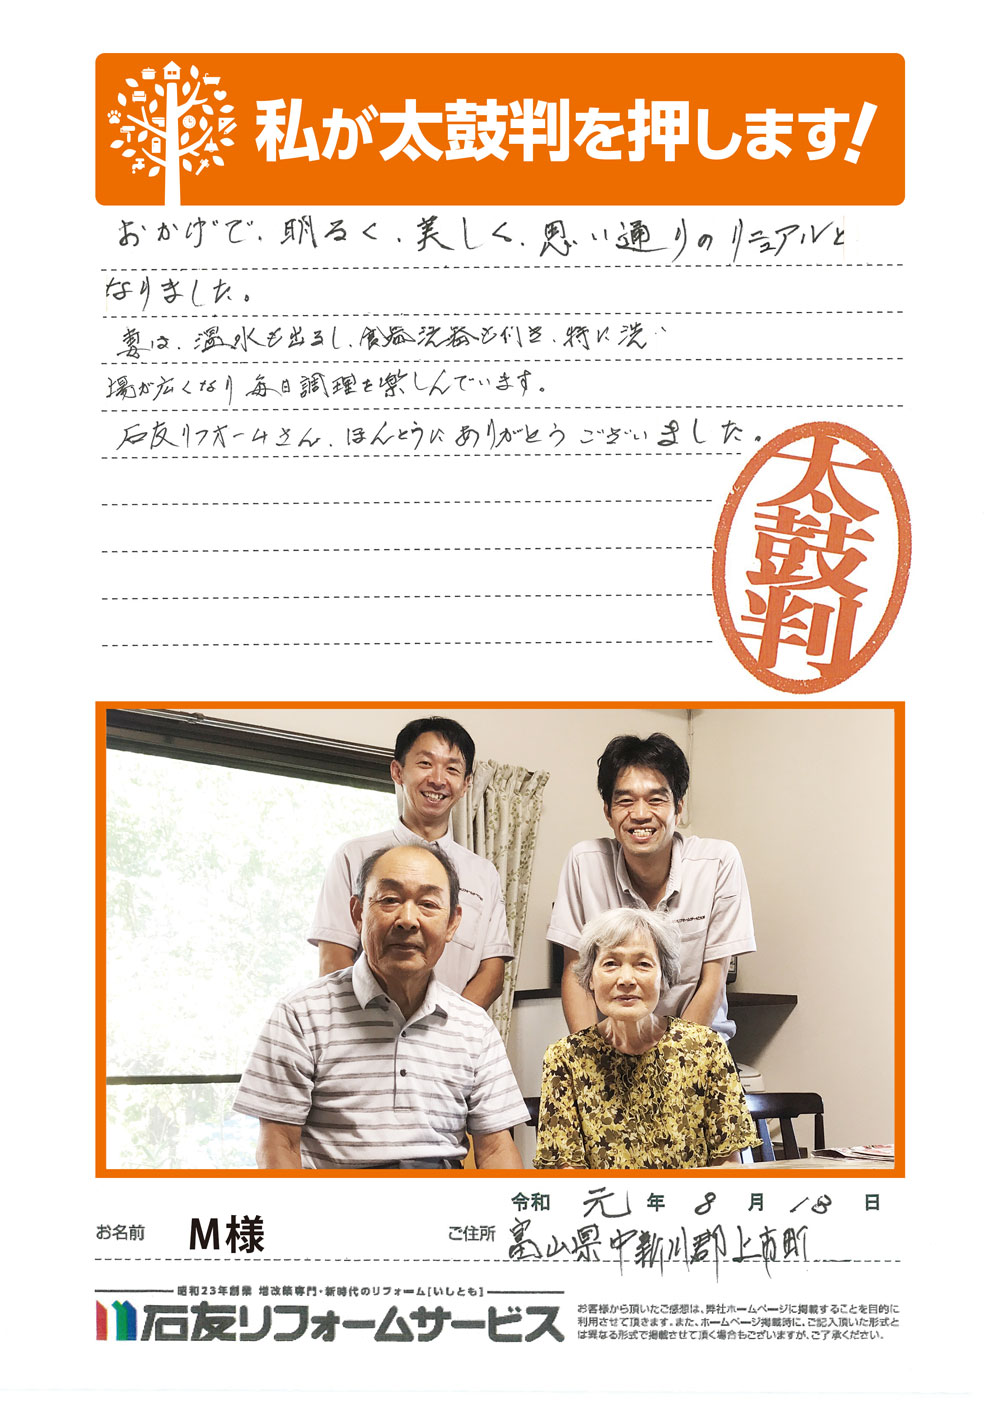 私が太鼓判を押します!
おかげで、明るく、美しく、思い通りのリニュアルと
なりました。
妻は、温水も出るし、食器洗器も付き、特に洗い
場が広くなり毎日調理を楽しんでいます。
石友リフォームさん、ほんとうにありがとうございました。
太鼓判
令和 元 年 8 月 18 日
お名前 M様 ご住所 富山県中新川郡上市町
昭和23年創業 増改築専門・新時代のリフォーム[いしとも]
石友リフォームサービス
お客様から頂いたご感想は、弊社ホームページに掲載することを目的に
利用させて頂きます。また、ホームページ掲載時に、ご記入頂いた形式と
は異なる形式で掲載させて頂く場合もございますが、ご了承ください。